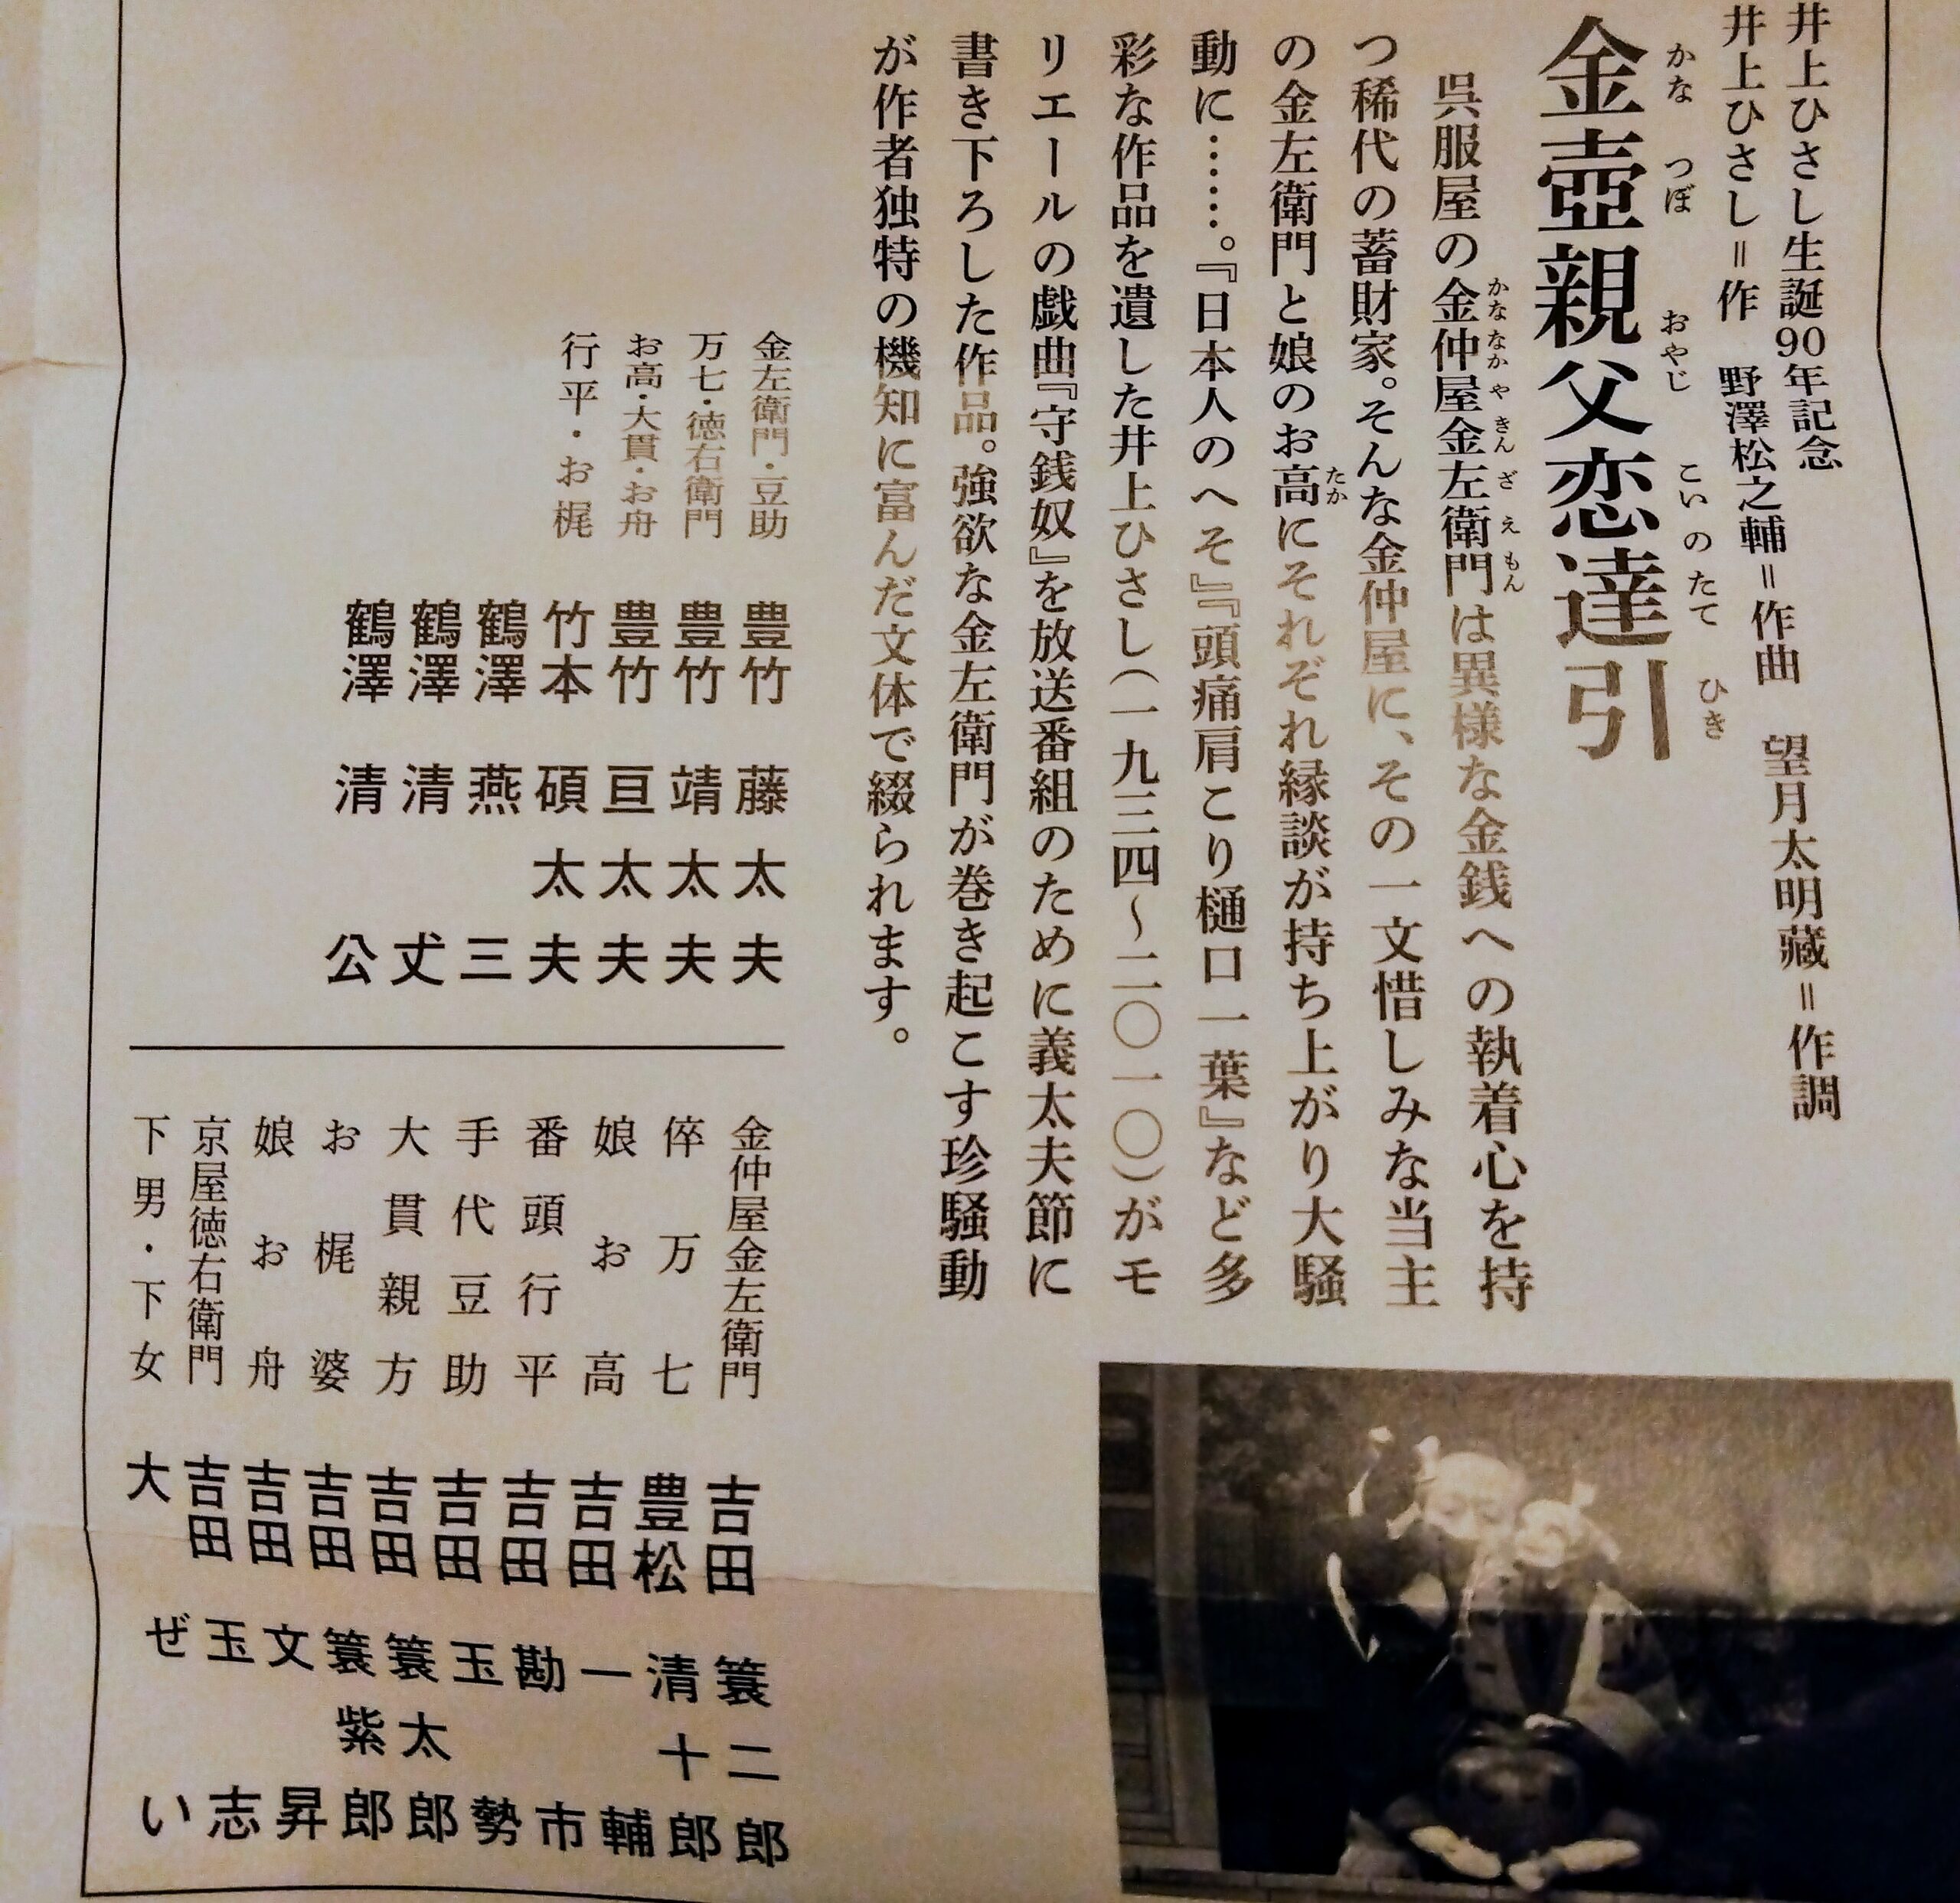 井上ひさし生誕90年記念
井上ひさし＝作　野澤松之輔＝作曲　望月太明藏＝作調
金壺親父恋達引
かなつぼおやじこいのたてひき
呉服屋の金仲屋金左衛門は異様な金銭への執着心を持
かななかやきんざえもん
つ稀代の蓄財家。そんな金仲屋に、その一文惜しみな当主
の金左衛門と娘のお高にそれぞれ縁談が持ち上がり大騒
たか
動に……。『日本人のへそ』『頭痛肩こり樋口一葉』など多
彩な作品を遺した井上ひさし（一九三四〜二〇一〇）がモ
リエールの戯曲『守銭奴』を放送番組のために義太夫節に
書き下ろした作品。強欲な金左衛門が巻き起こす珍騒動
が作者独特の機知に富んだ文体で綴られます。
金左衛門・豆助　豊竹藤太夫
万七・徳右衛門　豊竹靖太夫
お高・大貫・お舟　豊竹亘太夫
行平・お梶　竹本碩太夫
鶴澤燕三
鶴澤清𠀋
鶴澤清公
金仲屋金左衛門　吉田簑二郎
倅万七　豊松清十郎
娘お高　吉田一輔
番頭行平　吉田勘市
手代豆助　吉田玉勢
大貫親方　吉田簑太郎
お梶婆　吉田簑紫郎
娘お舟　吉田文昇
京屋徳右衛門　吉田玉志
下男・下女　大ぜい